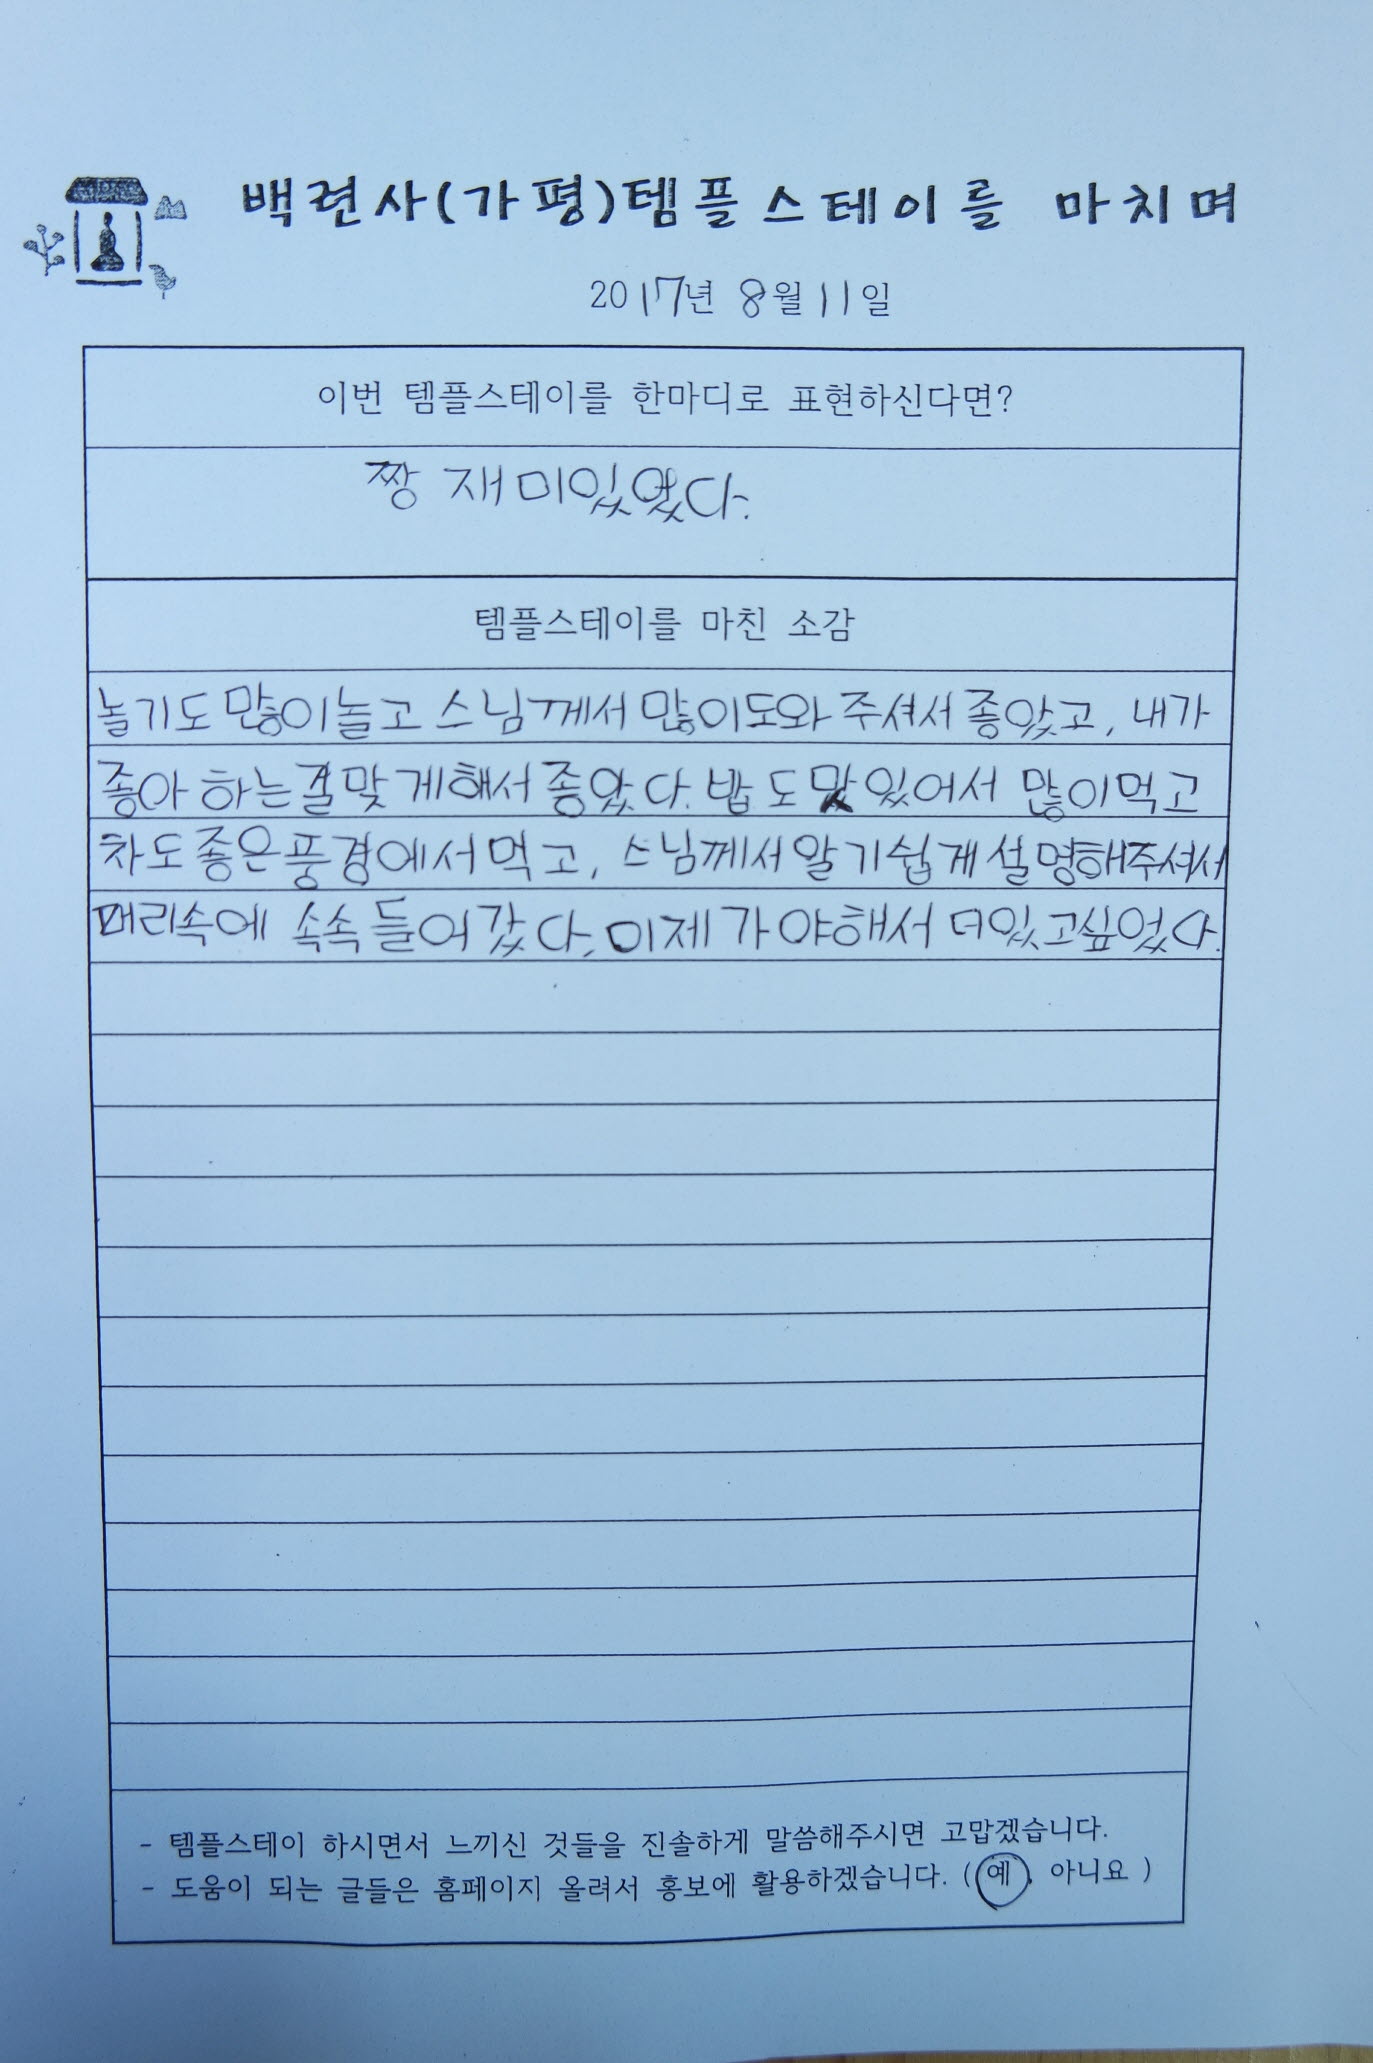 백련사(가평)템플스테이를 마치며
2017년 8월 11일
이번 템플스테이를 한마디로 표현하신다면?
짱 재미있었다.
템플스테이를 마친 소감
놀기도 많이놀고 스님께서 많이도와 주셔서 좋았고, 내가
좋아 하는걸맞게해서 좋았다. 밥도 맛있어서 많이먹고
차도 좋은풍경에서 먹고, 스님께서 알기쉽게 설명해주셔서
머리속에 속속 들어갔다, 이제 가야해서 더있고싶었다.
- 템플스테이 하시면서 느끼신 것들을 진솔하게 말씀해주시면 고맙겠습니다.
- 도움이 되는 글들은 홈페이지 올려서 홍보에 활용하겠습니다. ( 예, 아니요 )